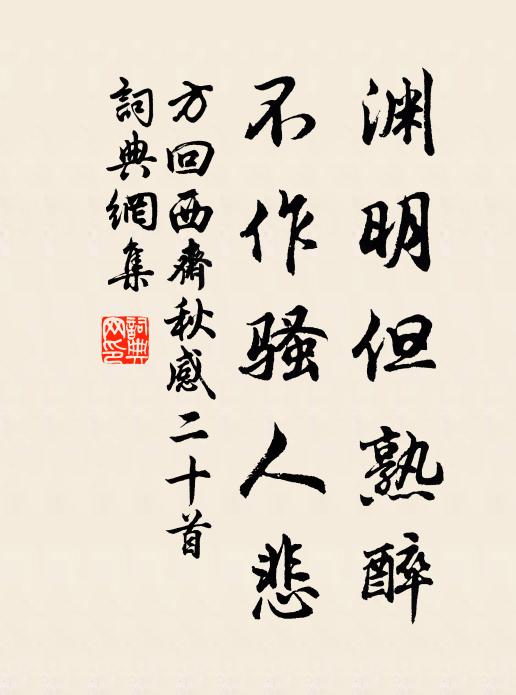 渊明但熟醉
不作骚人悲
方回西斋秋感二十首
詞典網集
詞典网印